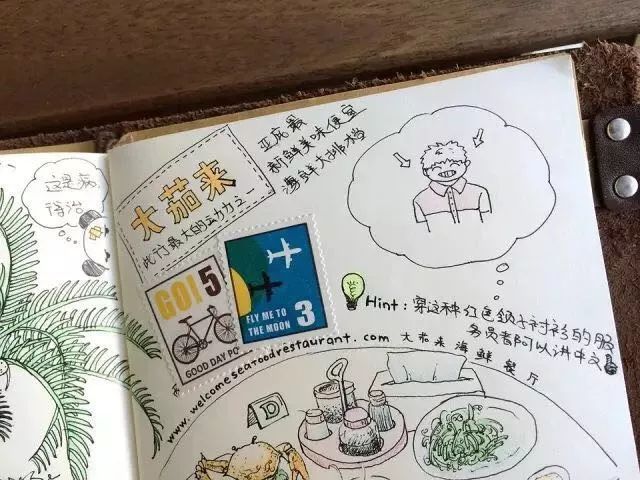 这是病
待治
大茄来
此行最大的动力之一
亚庇最
新鲜美味便宜
海鲜大排档
GO!
5
GOOD DAY PO
FLY ME TO
THE MOON
3
Hint: 穿这种红色领子衬衫的服
务员都可以讲中文
www.welcomeseafoodrestaurant.com 大茄来海鲜餐厅